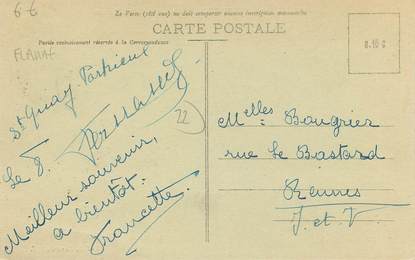 6€
Le Verso (côté vue) ne doit comporter aucune inscription manuscrite
CARTE POSTALE
Partie exclusivement réservée à la Correspondance
FLAMAT
0.10 c
St Quay Portrieux
Le 8.
22
Meilleur souvenir,
a bientôt.
Francette.
Melles Bougrier
rue Le Bastard
Rennes
I. et V.